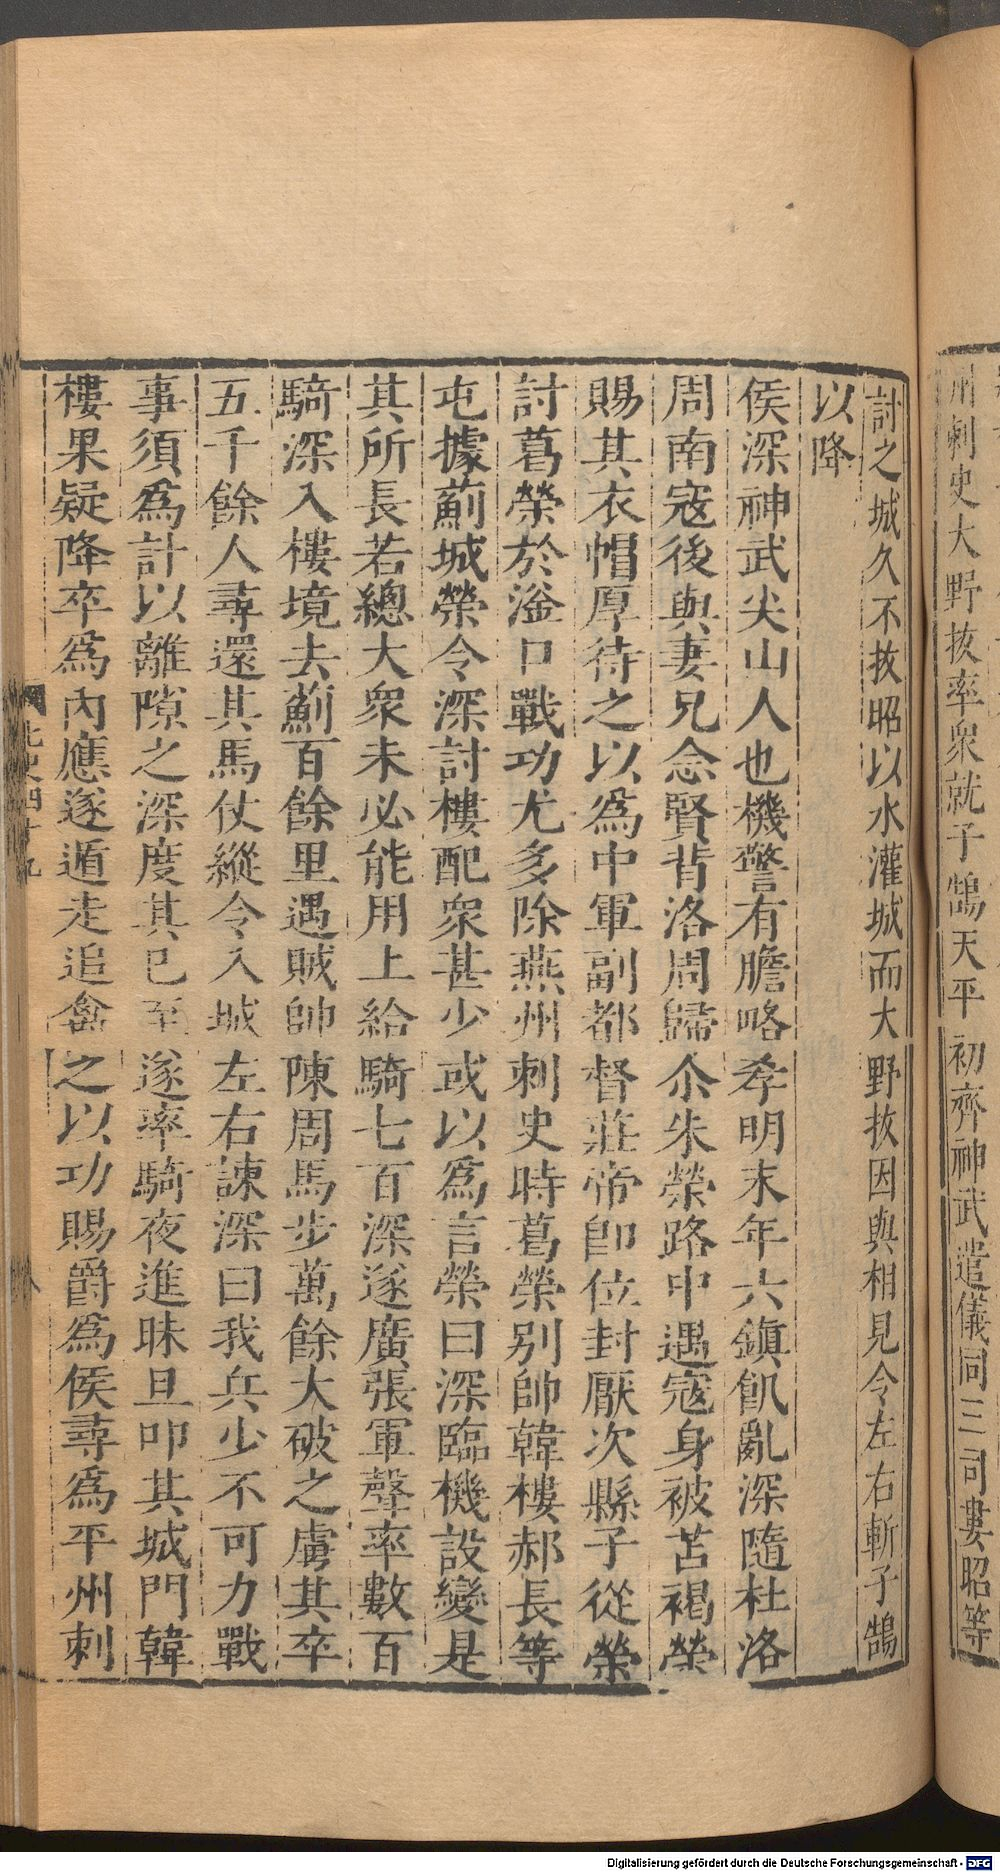 州刺史大野拔率衆就子鵠天平初齊神武遣儀同三司婁昭等
討之城久不拔昭以水灌城而大野拔因與相見令左右斬子鵠
以降
侯深神武尖山人也機警有膽略孝明末年六鎮飢亂深隨杜洛
周南寇後與妻兄念賢背洛周歸尒朱榮路中遇寇身被苫褐榮
賜其衣帽厚待之以爲中軍副都督莊帝卽位封厭次縣子從榮
討葛榮於滏口戰功尤多除燕州刺史時葛榮别帥韓樓郝長等
屯據薊城榮令深討樓配衆甚少或以爲言榮曰深臨機設變是
其所長若總大衆未必能用上給騎七百深遂廣張軍聲率數百
騎深入樓境去薊百餘里遇賊帥陳周馬步萬餘大破之虜其卒
五千餘人尋還其馬仗縱令入城左右諫深曰我兵少不可力戰
事須爲計以離隙之深度其已至遂率騎夜進昧旦叩其城門韓
樓果疑降卒爲內應遂遁走追禽之以功賜爵爲侯尋爲平州刺
北史四十九
八
Digitalisierung gefördert durch die Deutsche Forschungsgemeinschaft - DFG